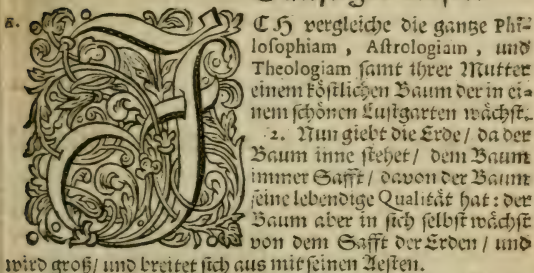 1.
ICH vergleiche die gantze Phi-
losophiam, Astrologiam, und
Theologiam samt ihrer Mutter
einem köstlichen Baum der in ei-
nem schönen Lustgarten wächst.
2. Nun giebt die Erde / da der
Baum inne stehet / dem Baum
immer Safft / davon der Baum
seine lebendige Qualität hat: der
Baum aber in sich selbst wächst
von dem Safft der Erden / und
wird groß / und breitet sich aus mit seinen Aesten.